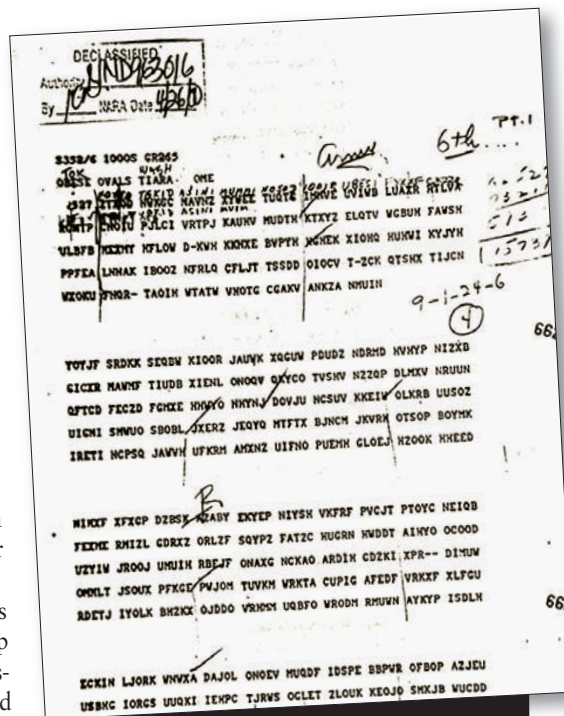 DECLASSIFIED
Authority NND963016
By NARA Date
6th PT.1
S332/6 1000S GR265
OBESE OVALS TIARA OME
KAUHV MUDTH KTXYZ ELQTV WGBUH FAWSH
ULBFB HFLOW D-KWH KKHXE BVPYH XIOHQ HUHWI KYJYH
PPFEA LNHAX IBOOZ NFRLQ CFLJT TSSDD OIOCV T-ZCK QTSHX TIJCN
WZOKU FHQR- TAOIH WTATW VHOTG CGAKV ANKZA NMUIN
9-1-24-6
4
YOYJF SRDKK SEQBW KIOOR JAUVK XQGUW PDUDZ NDRMD HVHYP NIZXB
662
GICXR MAVMF TIUDB XIENL ONOQV QXYCO TVSHV NZZQP DLMXV NRUUN
QFTCD FECZD FGMXE HHWYO NHYNJ DOVJU NCSUV KKEIW OLKRB UUSOZ
UIGNI SMWUO SBOBL JXERZ JEQYQ MTFTX BJNCM JKVRH OTSOP BOYMK
IRETI NCPSQ JAWVH UFKRM AMXNZ UIFNO PUEMH GLOEJ HZOOK HHEED
R
NIMXF XFXCP DZBSK AZABY EKYEP NIYSH VKFRF PVCJT PTOYC NEIQB
FEXME RMIZL GDRXZ ORLZF SQYPZ FATZC HUGRN HWDDT AIHYO OCOOD
UZYIW JROOJ UMUIH RBEJF ONAXG NCKAO ARDIH CDZKI XPR-- DIMUW
OMMLT JSOUX PFKGE PWJOM TUVKM WRKTA CUPIG AFEDF VRKXF XLFGU
RDETJ IYOLK BHZKX OJDDO VRHMM UQBFO WRODM RMUWN AYKYP ISDLH
66
ECKIN LJORK WNVXA DAJOL ONOEV MUQDF IDSPE BBPWR OFBOP AZJEU
USBHG IORGS UUQXI IEHPC TJRWS OGLET ZLOUK KEOJO SMKJB WUCDD
n
r
s
p
s-
d